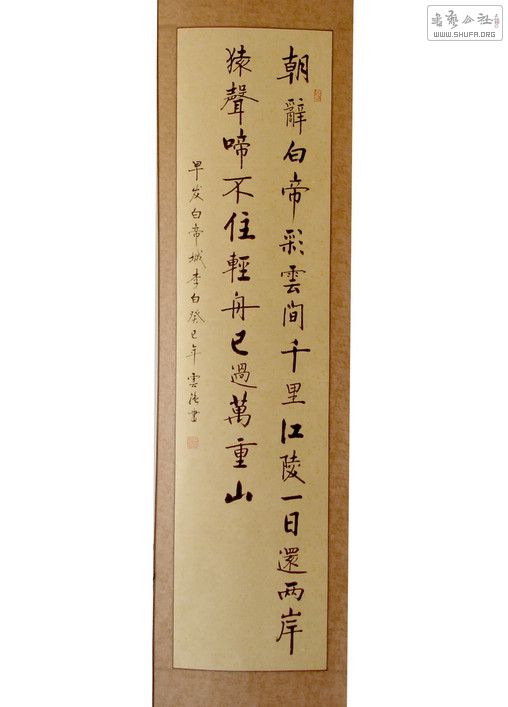 朝辭白帝彩雲間千里江陵一日還两岸
猿聲啼不住輕舟已過萬重山
早发白帝城李白癸巳年 雲 書
書藝公社
WWW.SHUFA.ORG